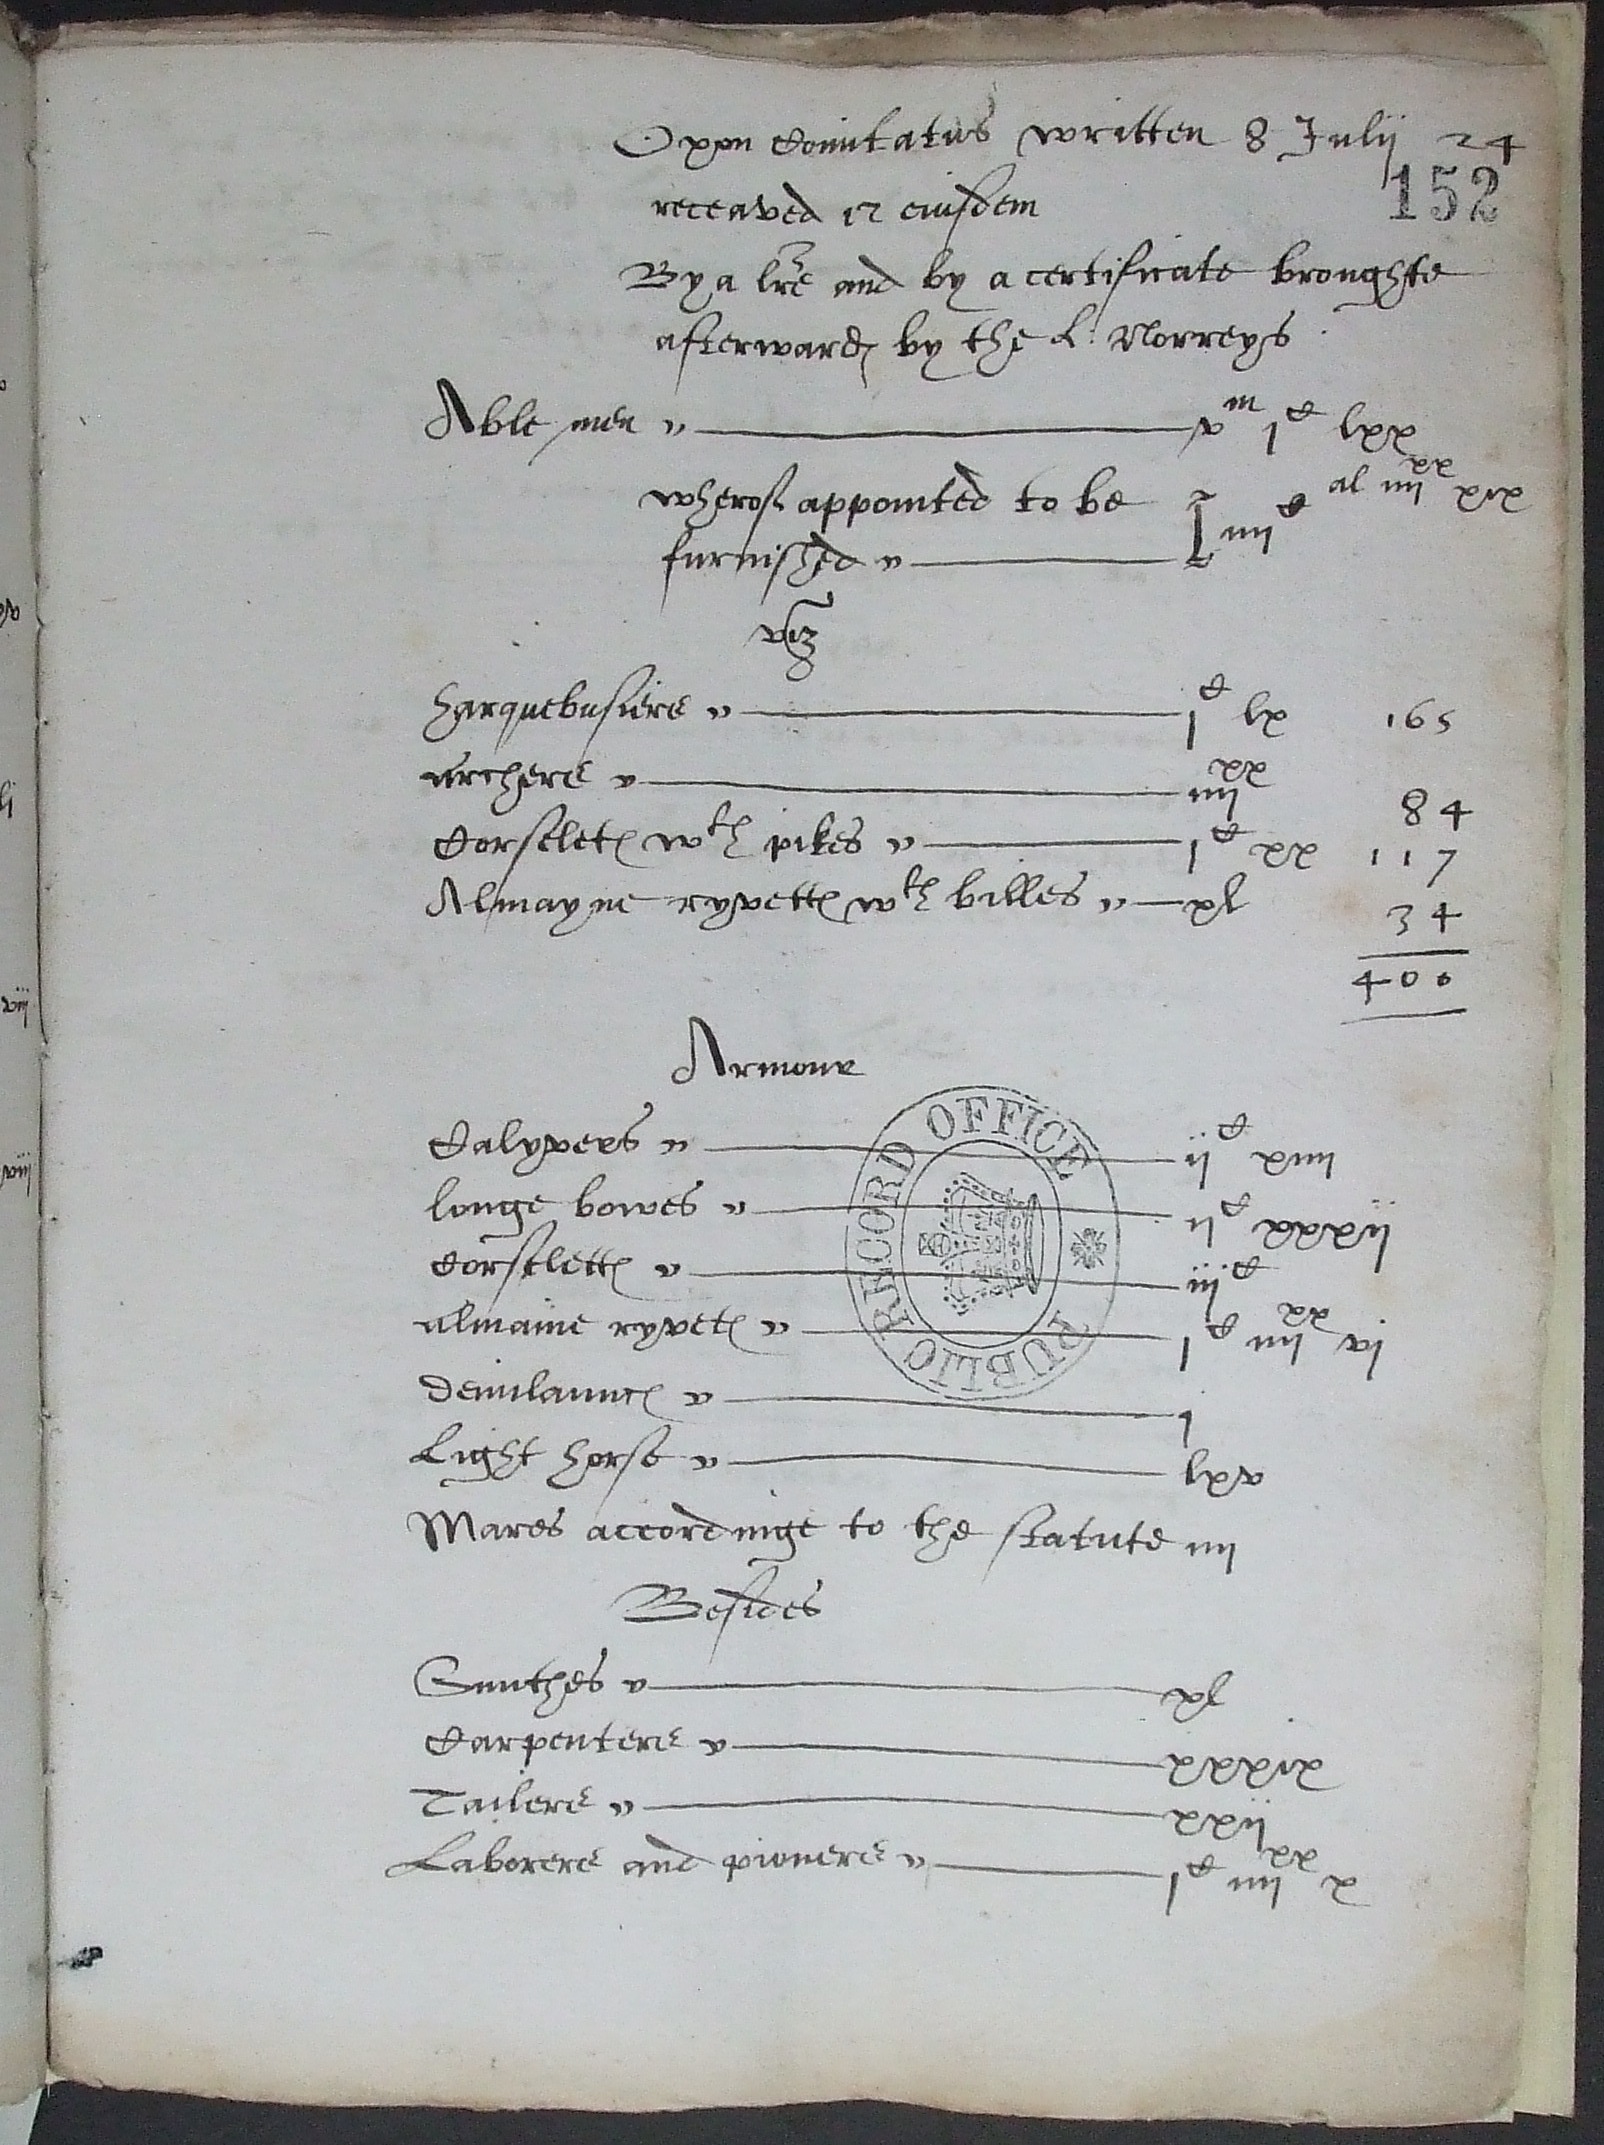 Oxon Comitatus written 8 Julij 24
152
receaved 12 eiusdem
By a lre and by a certificate broughte
afterwardes by the L: Norreys
Able men " v^m j^c lxx
wherof appointed to be
furnished " iiij^c al iiij^xx xix
viz
Harquebusiers " j^c lx 165
Archers " iiij^xx 84
Corsletes wth pikes " j^c xx 117
Almayne ryvettes wth billes " xl 34
400
Armour
Calyvers " ij^c xiiij
Longe bowes " ij^c xxxij
Corslettes " iij^c
Almaine ryvetes " j^c iiij^xx vj
Demilaunces " j
Light horse " lxv
Mares accordinge to the statute iij
Besides
Smithes " xl
Carpenters " xxxix
Tailers " xxij
Laborers and pioners " j^c iiij^xx x
PUBLIC RECORD OFFICE